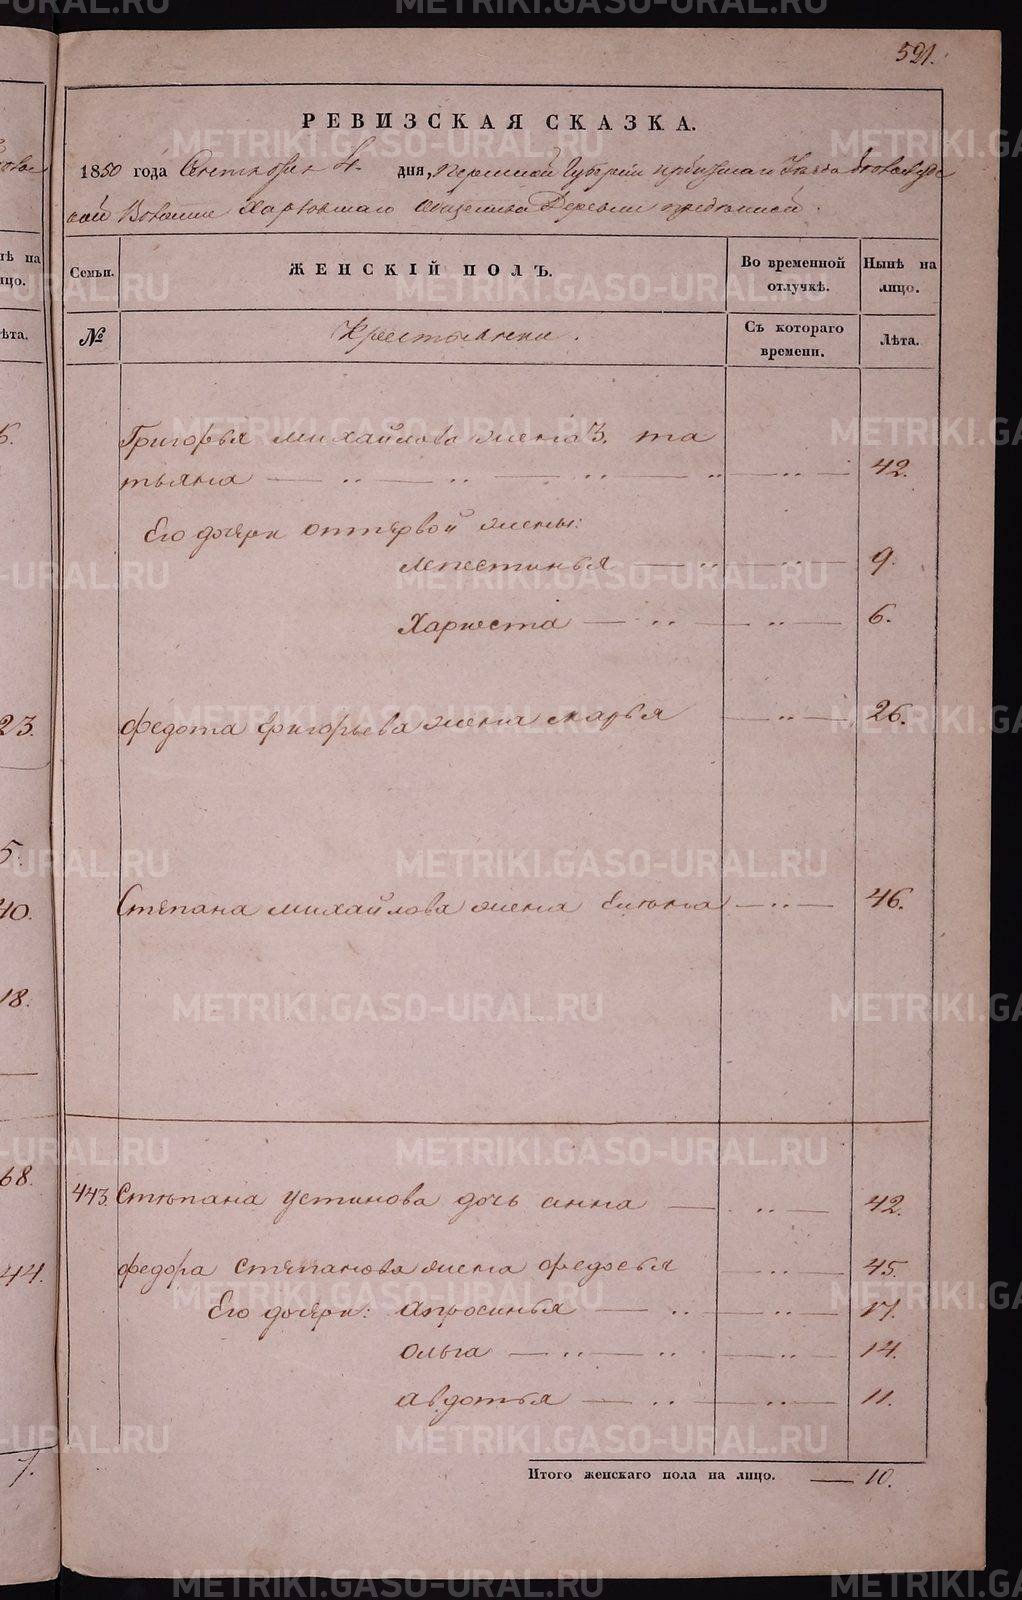 521.
РЕВИЗСКАЯ СКАЗКА.
1850 года Сентября 4. дня, Пермской Губернии Ирбитскаго Уезда
Волости Харловскаго Общества Деревни
Семьи. ЖЕНСКІЙ ПОЛЪ. Во временной отлучкѣ. Нынѣ на лицо.
№ Крестьянски. Съ котораго времени. Лѣта.
Григорья михайлова жена 3. та
тьяна 42.
Его дочери отпервой жены:
лепестинья 9.
Харитста 6.
федота григорьева жена марья 26.
Степана михайлова жена 46.
443. Степана устинова дочь анна 42.
федора степанова жена федосья 45.
Его дочери: апросинья 17.
ольга 14.
авдотья 11.
Итого женскаго пола на лицо. 10.
23.
5.
40.
18.
68.
44.
7.
METRIKI.GASO-URAL.RU